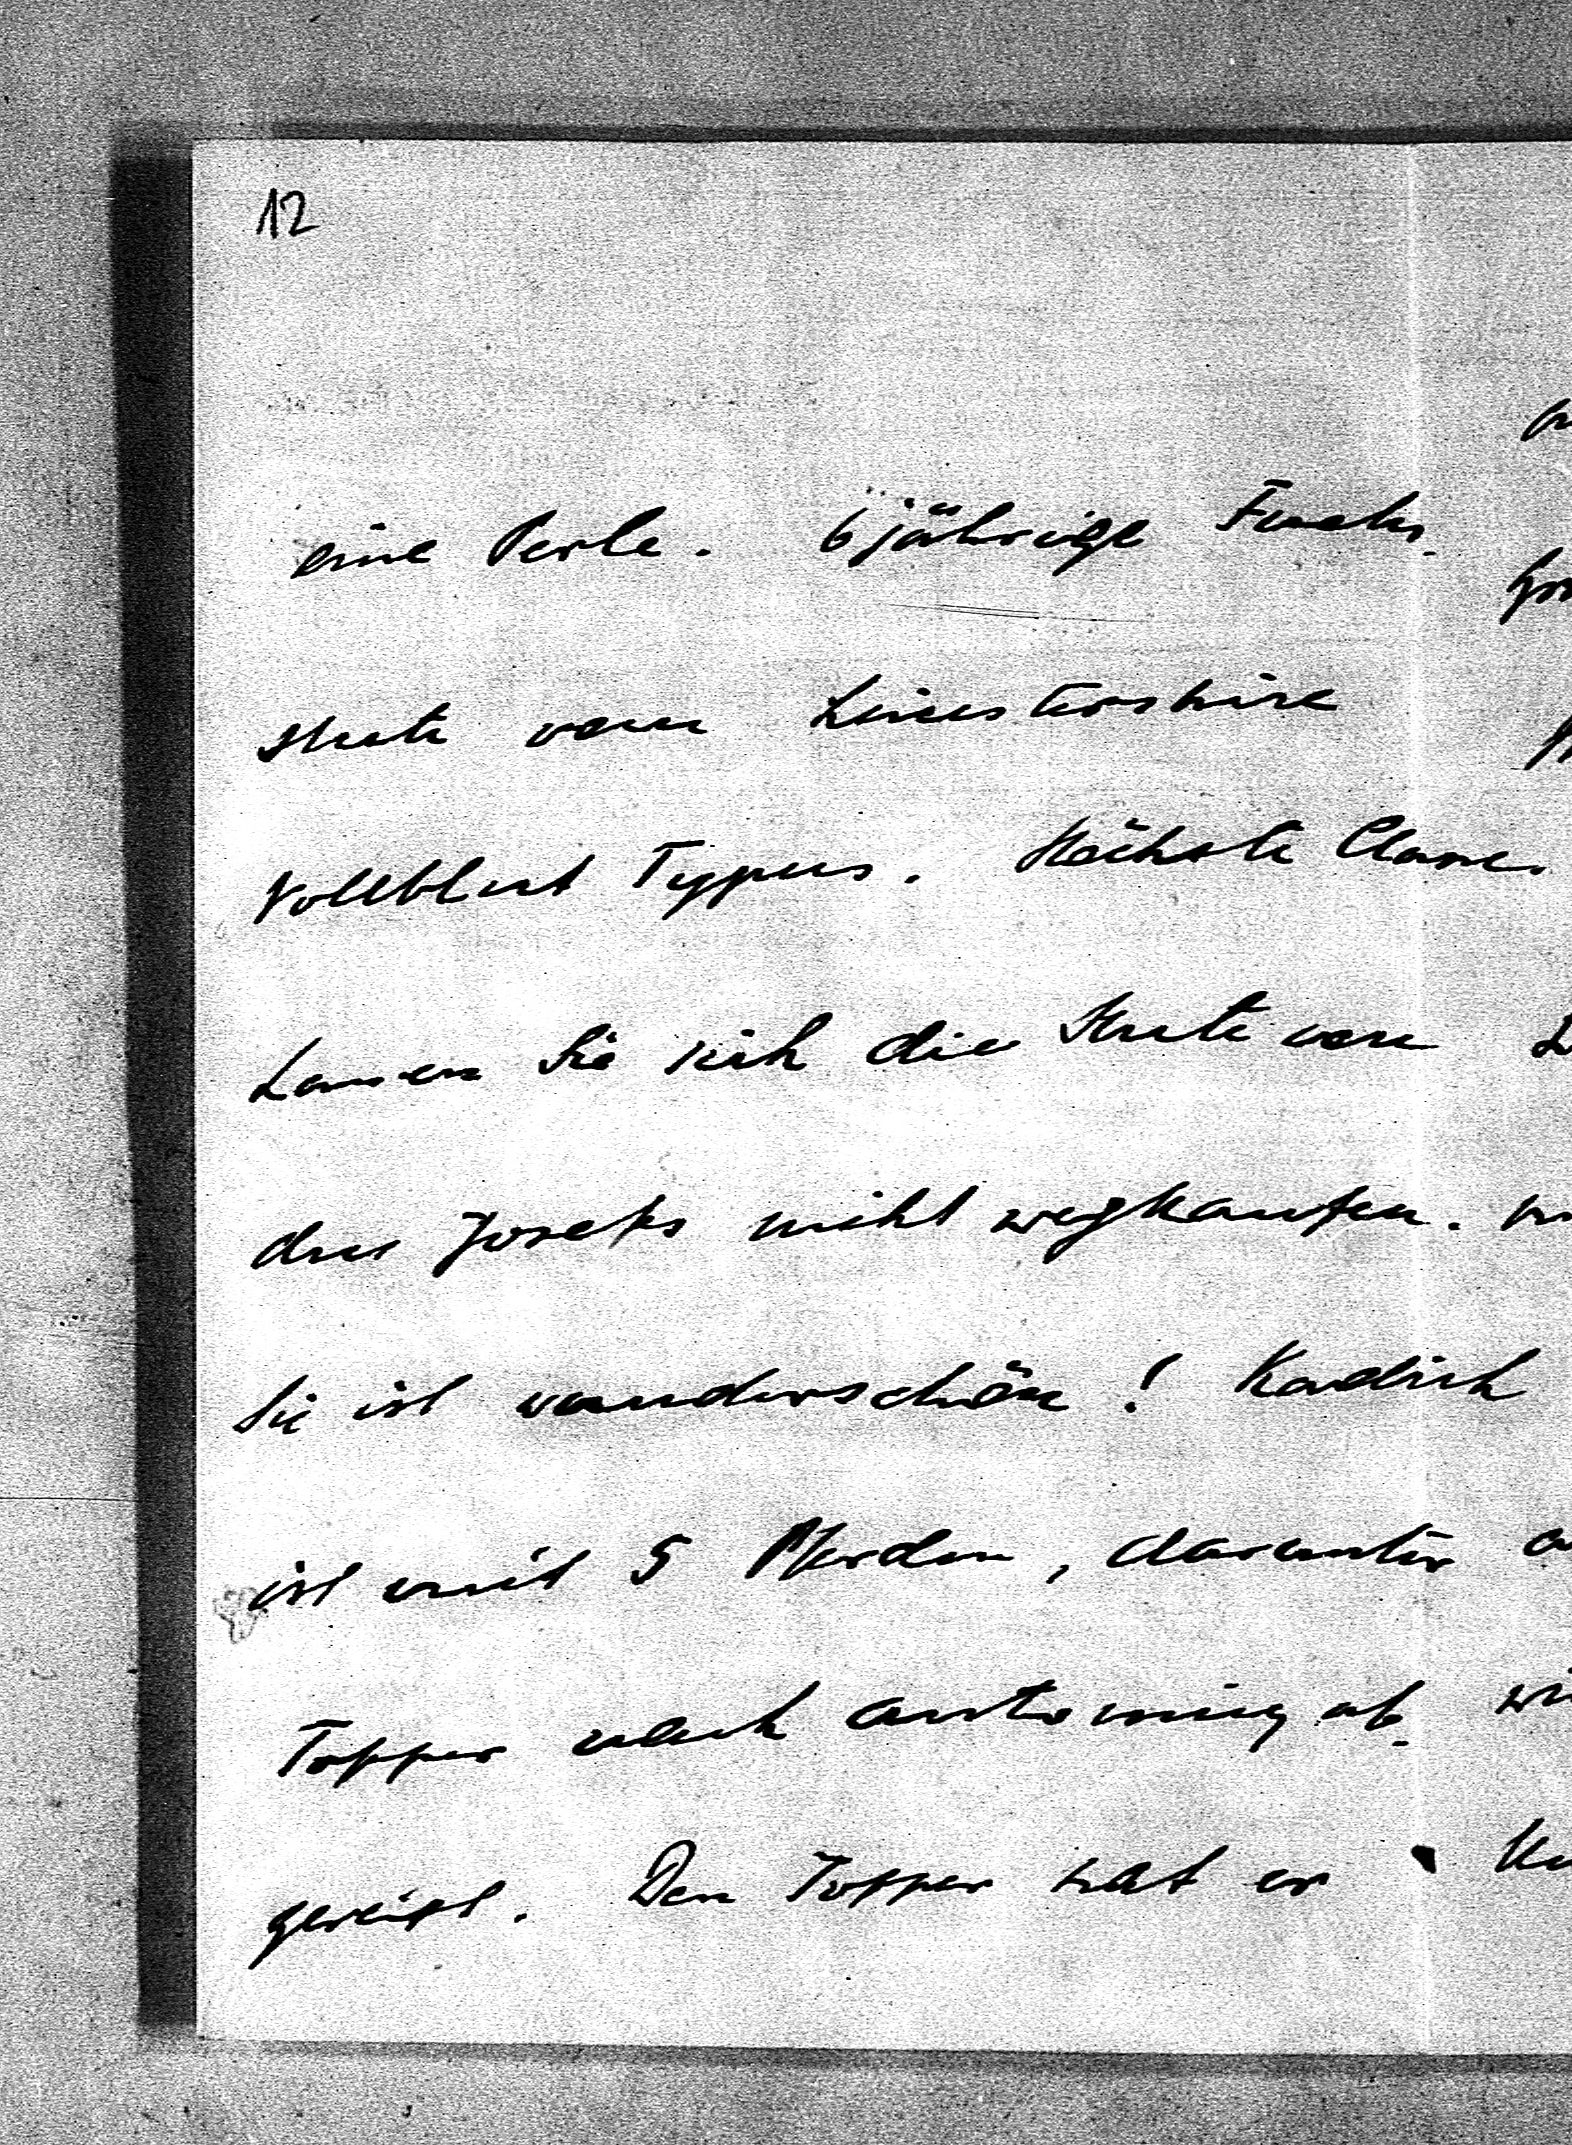 12
eine Perle. 6jährige Fuchs-
stute vom Leicestershire
Vollblut Typus. Höchste Classe.
Lassen Sie sich die Stute von
den Josefs nicht wegkaufen.
Sie ist wunderschön! Kadich
ist mit 5 Pferden, darunter
Topper nach antoning ab-
gereist. Den Topper hat er